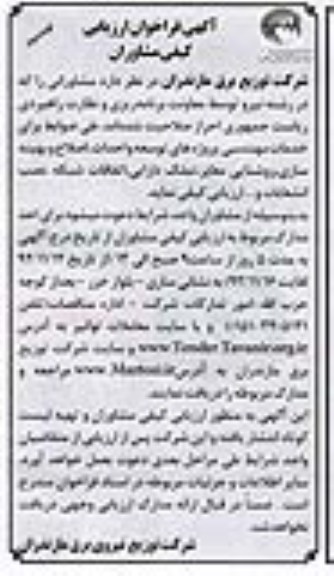 آگهی فراخوان ارزیابی
کیفی مشاوران
شرکت توزیع برق مازندران در نظر دارد مشاورانی را که
در رشته نیرو توسط معاونت برنامه‌ریزی و نظارت راهبردی
ریاست جمهوری احراز صلاحیت شده‌اند، طی ضوابط برای
خدمات مهندسی پروژه‌های توسعه و احداث، اصلاح و بهینه
سازی، روشنایی معابر، تملک دارایی، اتفاقات شبکه، نصب
انشعابات و... ارزیابی کیفی نماید.
بدینوسیله از مشاوران واجد شرایط دعوت میشود برای اخذ
مدارک مربوط به ارزیابی کیفی مشاوران از تاریخ درج آگهی
به مدت ۵ روز از ساعت ۹ صبح الی ۱۳ از تاریخ
لغایت به نشانی ساری - بلوار خزر - بعد از کوچه
حزب الله امور تدارکات شرکت - اداره مناقصات تلفن
و یا سایت معاملات توانیر به آدرس
www.Tender.Tavanir.org.ir و سایت شرکت توزیع
برق مازندران به آدرس مراجعه و
مدارک مربوطه را دریافت نمایند.
این آگهی به منظور ارزیابی کیفی مشاوران و تهیه لیست
کوتاه انتشار یافته و این شرکت پس از ارزیابی از متقاضیان
واجد شرایط طی مراحل بعدی دعوت بعمل خواهد آورد.
سایر اطلاعات و جزئیات مربوطه در اسناد فراخوان مندرج
است. ضمناً در قبال ارائه مدارک ارزیابی وجهی دریافت
نخواهد شد.
شرکت توزیع نیروی برق مازندران